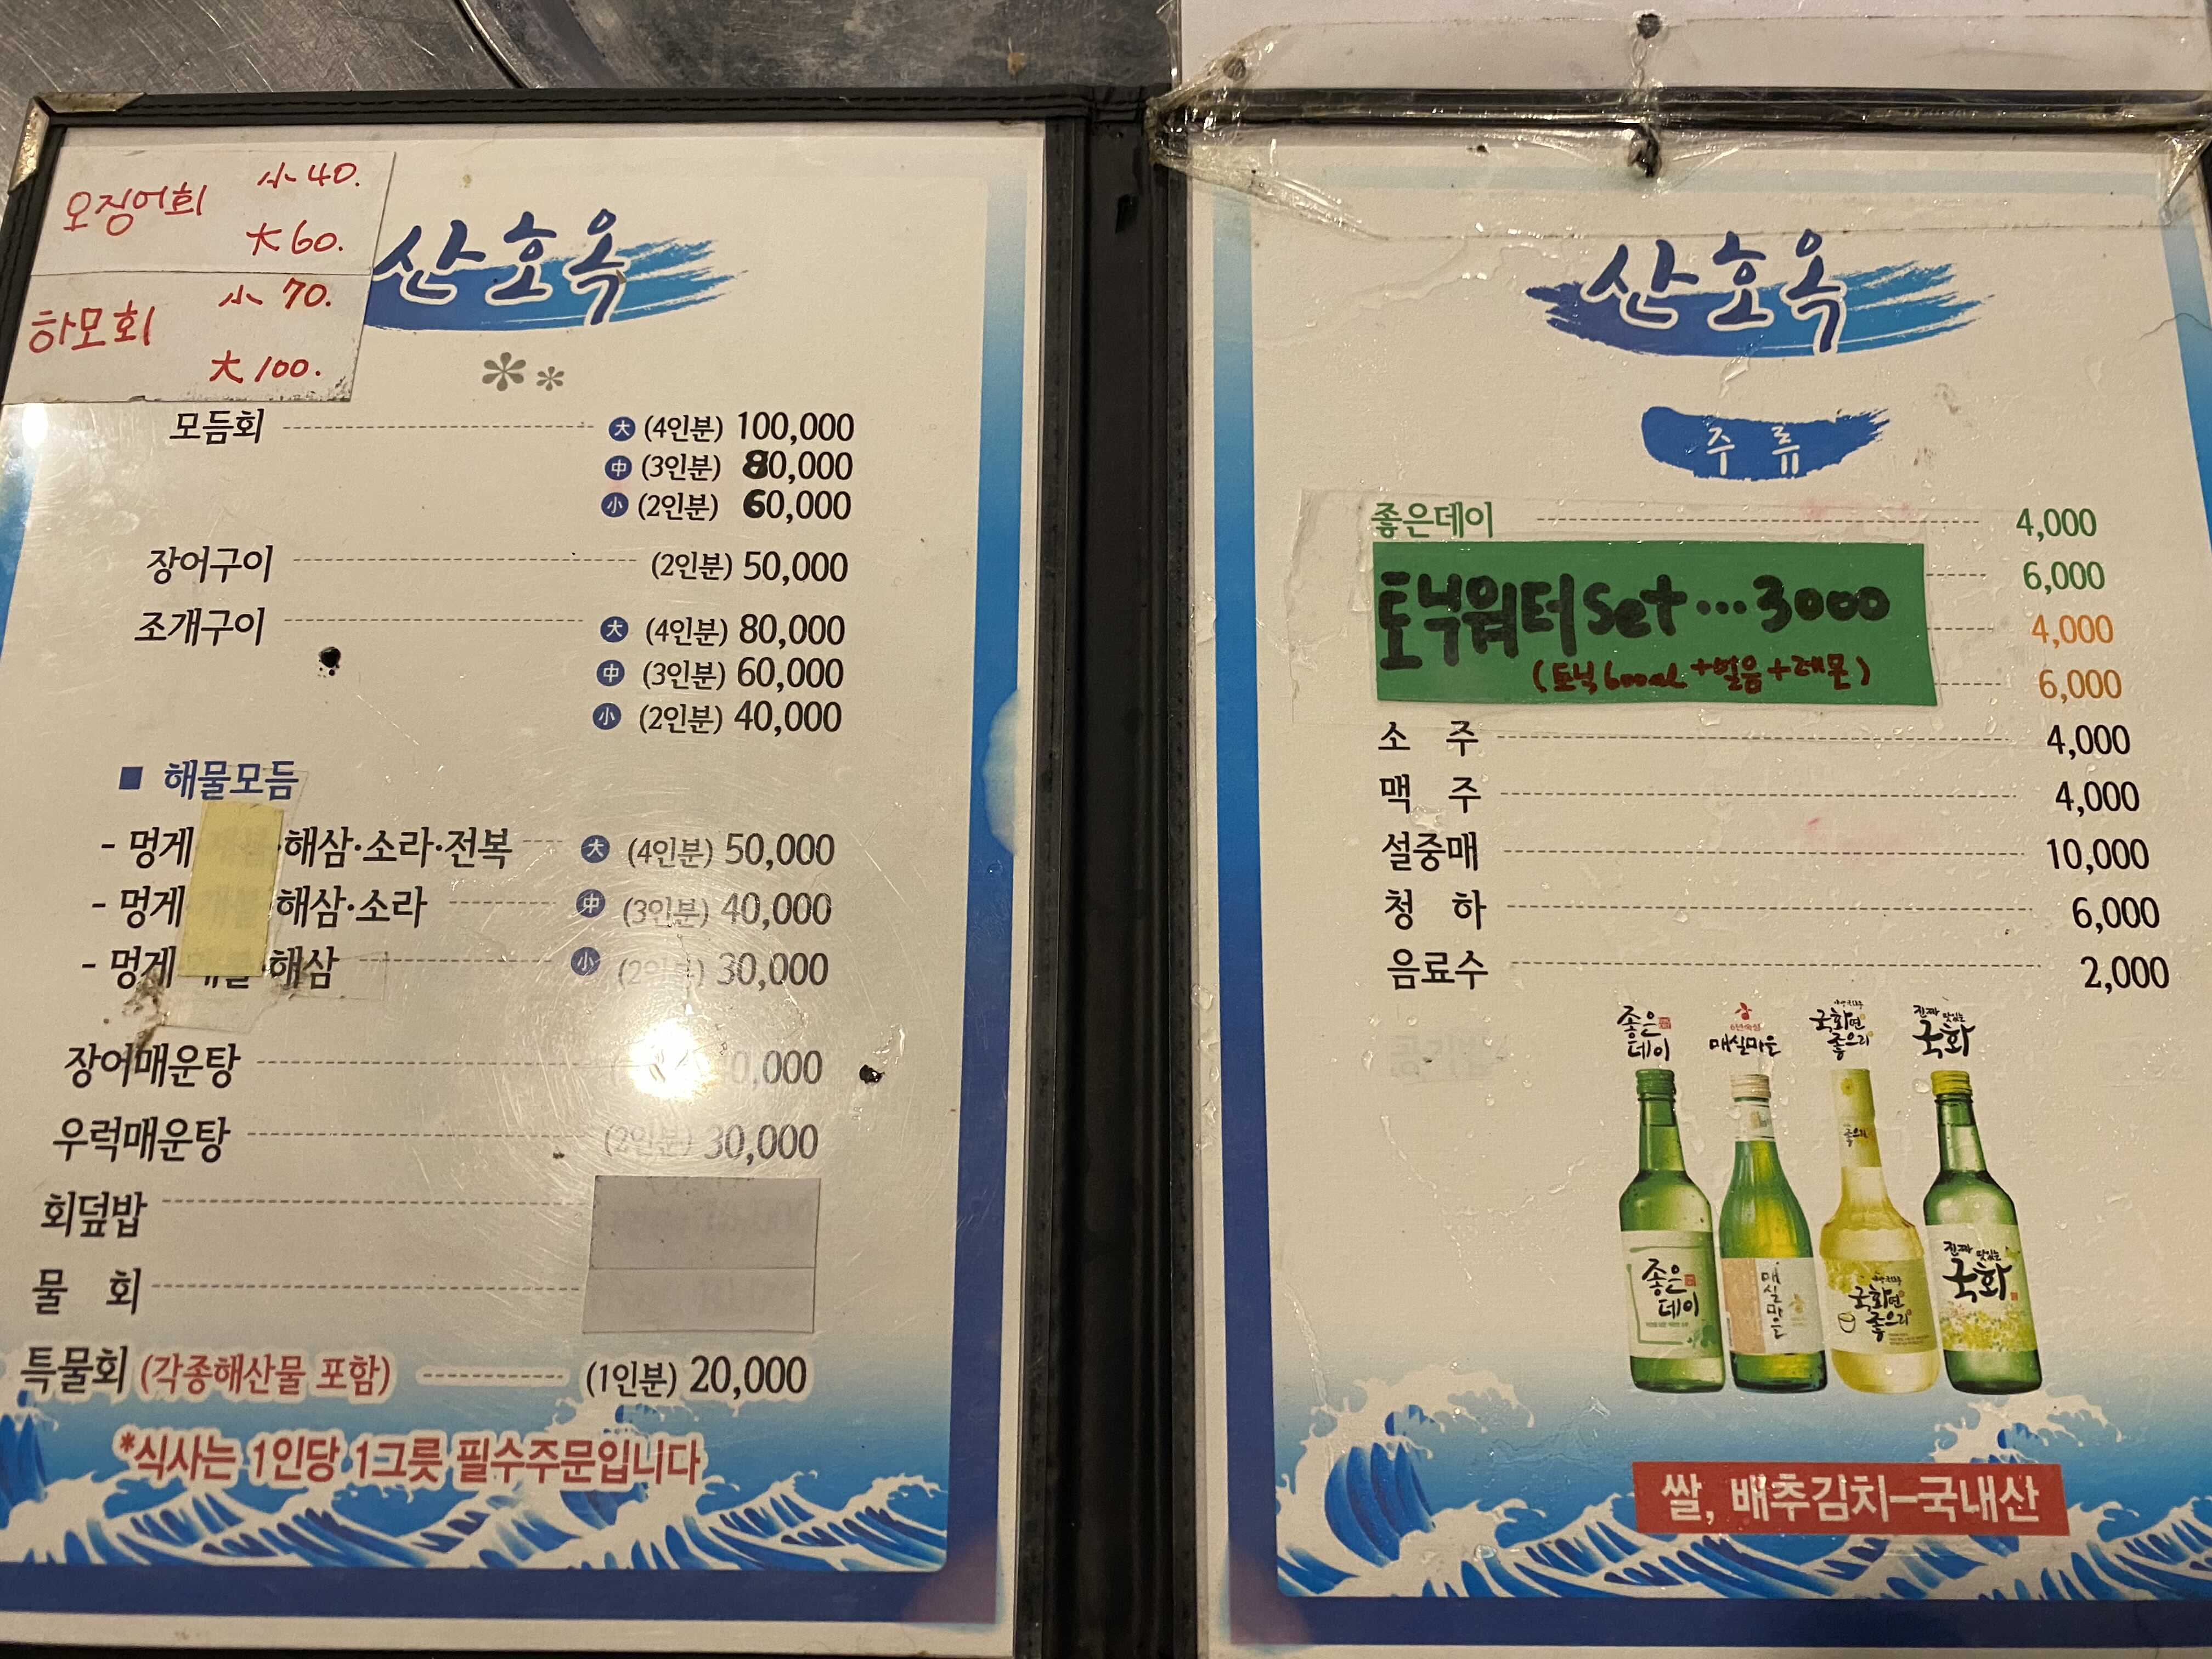 오징어회 小 40.
大 60.
하모회 小 70.
大 100.
산호옥
모듬회 大 (4인분) 100,000
中 (3인분) 80,000
小 (2인분) 60,000
장어구이 (2인분) 50,000
조개구이 大 (4인분) 80,000
中 (3인분) 60,000
小 (2인분) 40,000
■ 해물모듬
- 멍게 ·해삼·소라·전복 大 (4인분) 50,000
- 멍게 해삼·소라 中 (3인분) 40,000
- 멍게 ·해삼 小 (2인분) 30,000
장어매운탕
우럭매운탕 (2인분) 30,000
회덮밥
물 회
특물회 (각종해산물 포함) (1인분) 20,000
*식사는 1인당 1그릇 필수주문입니다
산호옥
주 류
좋은데이 4,000
6,000
토닉워터 set ... 3000
4,000
(토닉 600mL + 얼음 + 레몬)
6,000
소 주 4,000
맥 주 4,000
설중매 10,000
청 하 6,000
음료수 2,000
좋은데이
매실마을
국화면 좋으리
진짜 맛있는 국화
좋은데이
매실마을
국화면 좋으리
진짜 맛있는 국화
쌀, 배추김치-국내산